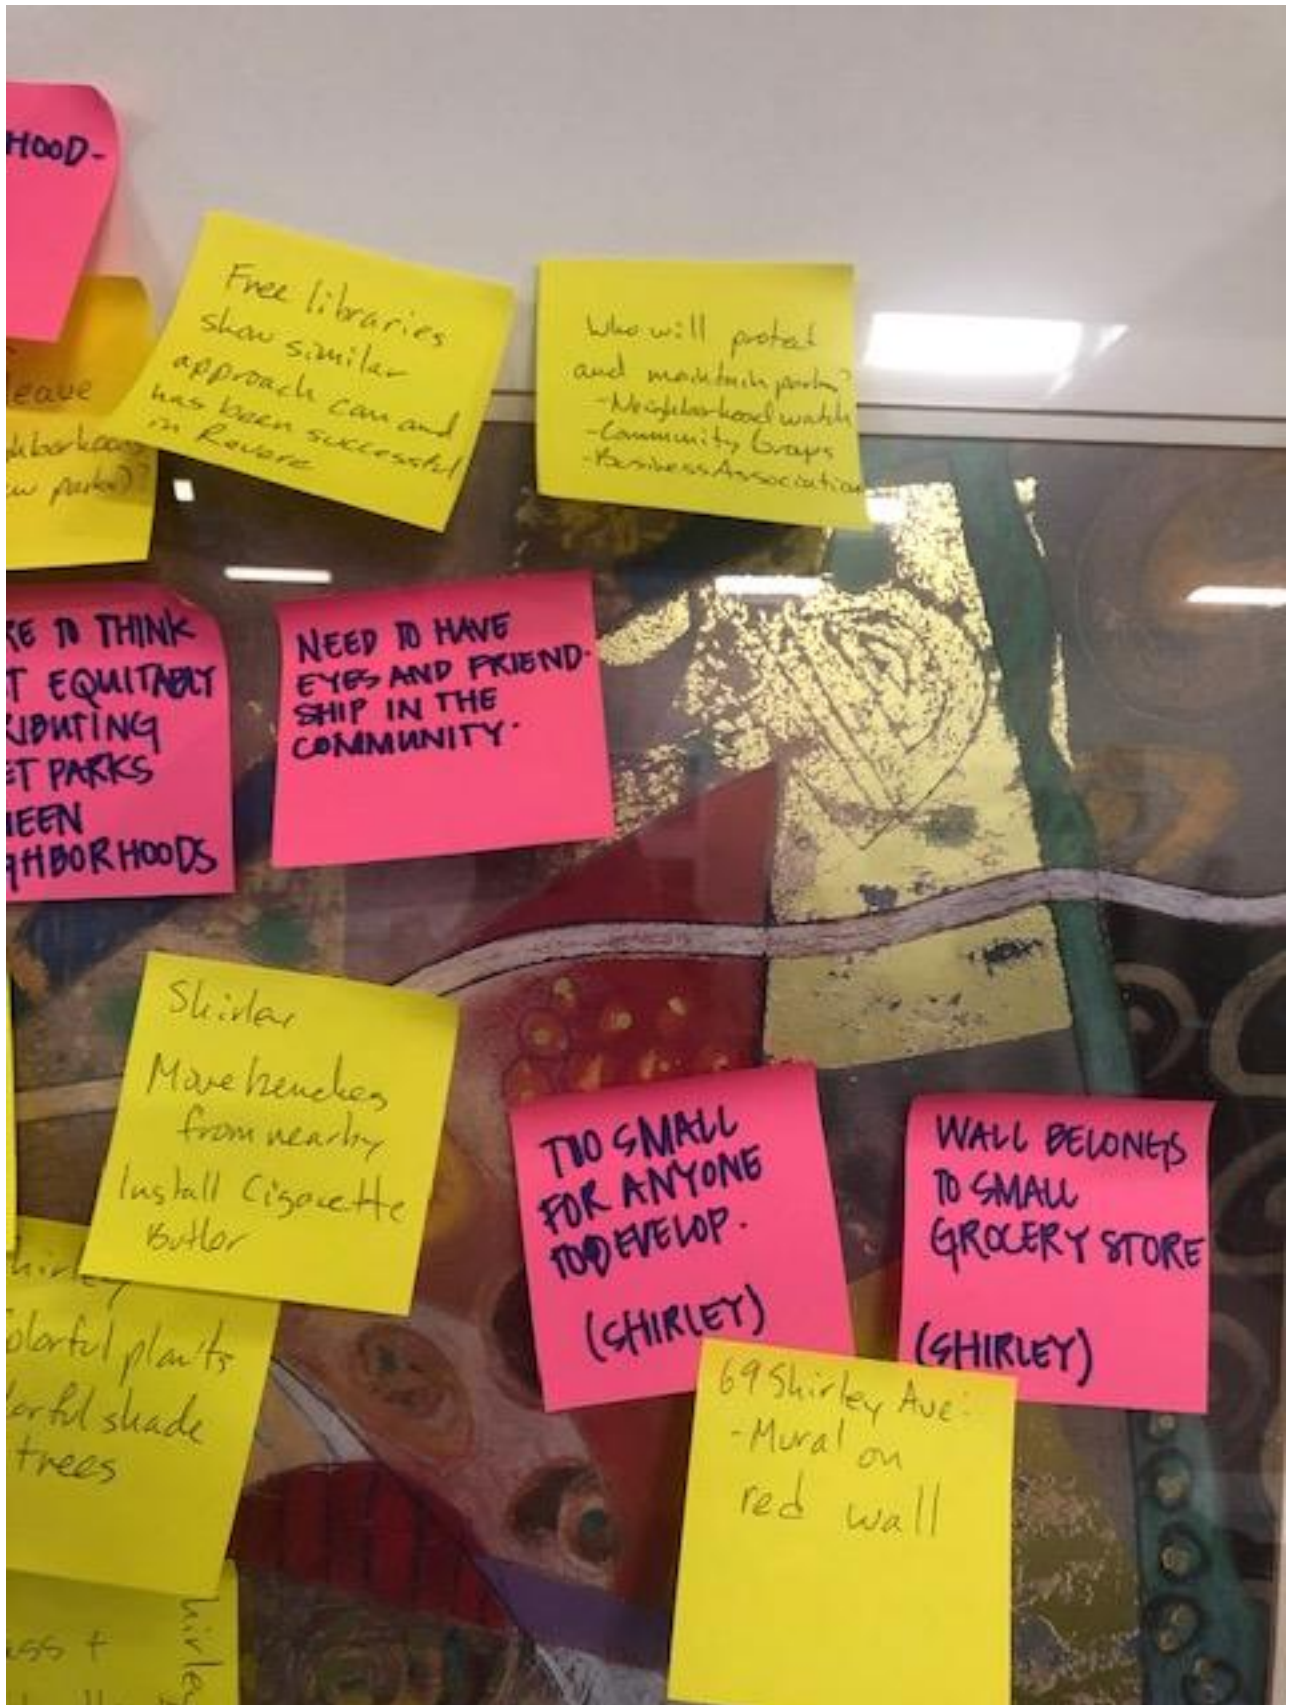 HOOD-
Free libraries
show similar
approach can and
has been successful
in Revere
Who will protect
and maintain parks?
-Neighborhood watch
-Community Groups
-Business Association
leave
ghborhoods
w parks)?
KE TO THINK
T EQUITABLY
RIBUTING
ET PARKS
WEEN
GHBORHOODS
NEED TO HAVE
EYES AND FRIEND-
SHIP IN THE
COMMUNITY.
Shirley
Move benches
from nearby
Install Cigarette
Butler
TOO SMALL
FOR ANYONE
TO DEVELOP.
(SHIRLEY)
WALL BELONGS
TO SMALL
GROCERY STORE
(SHIRLEY)
hirley
olorful plants
orful shade
trees
69 Shirley Ave:
-Mural on
red wall
ass +
hirley